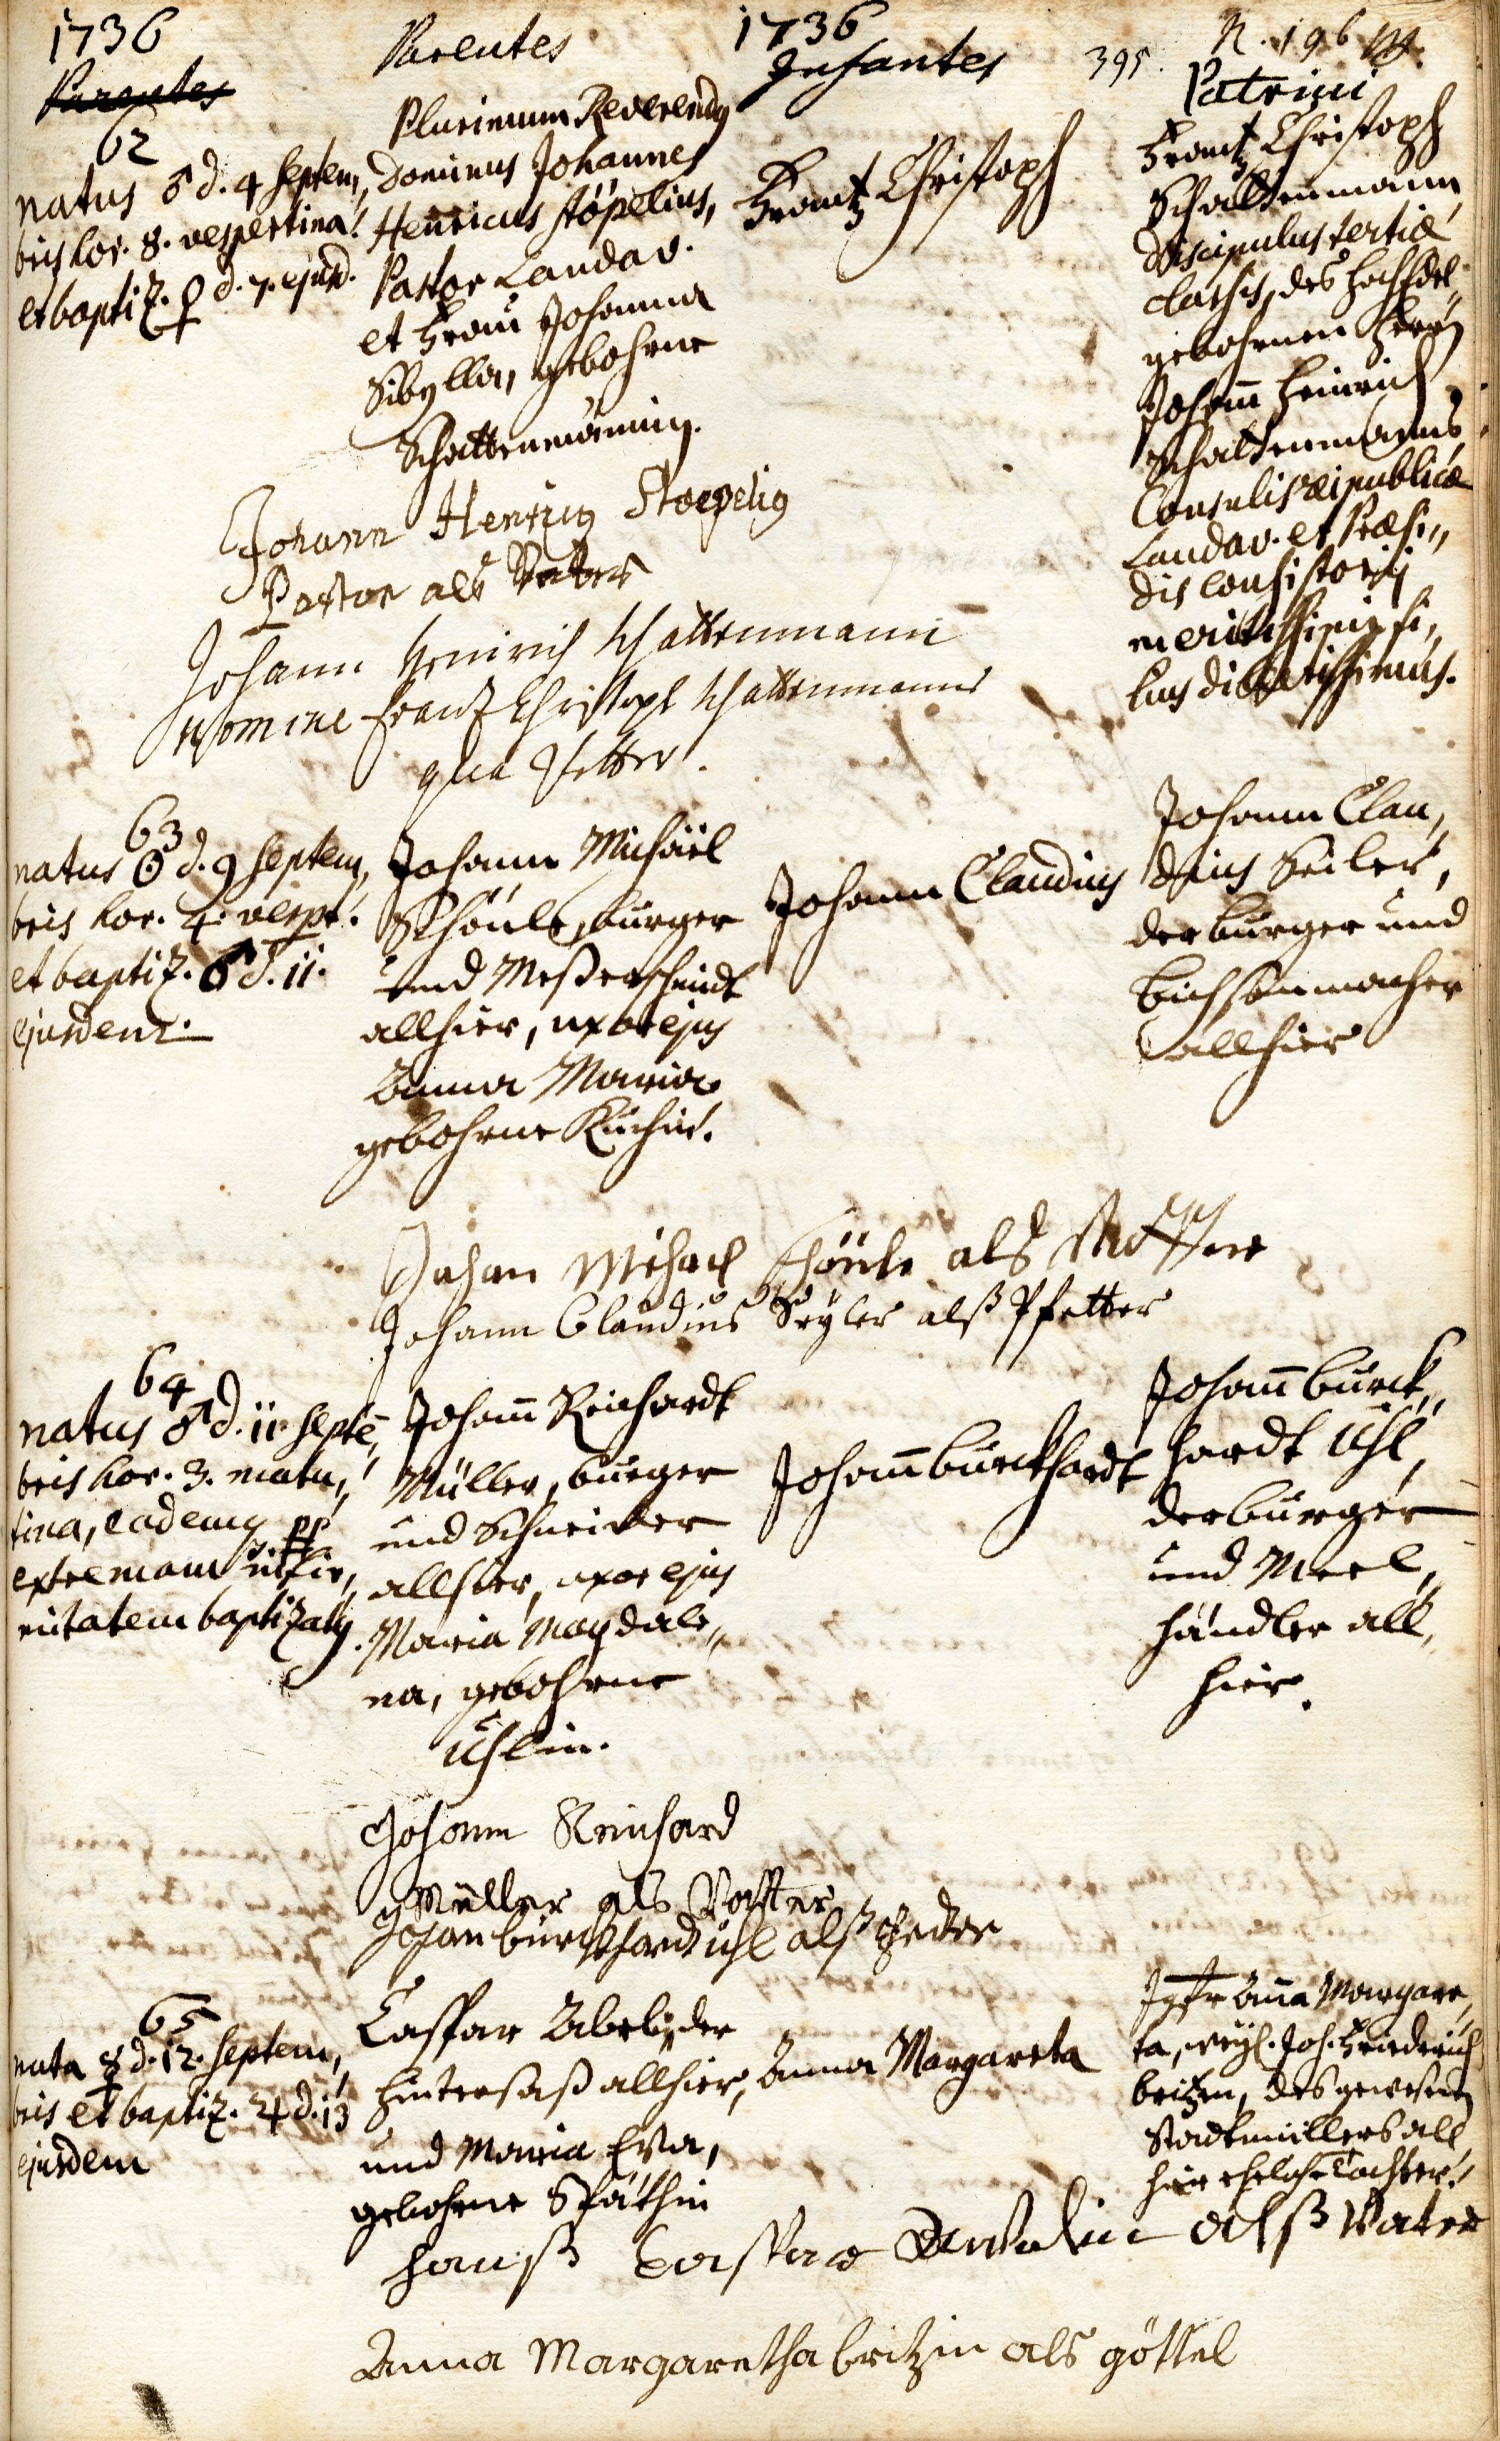 1736
Parentes
1736
Infantes
395.
N. 196
Patrini
Parentes
62
natus ♂ d. 4 Septem,,
bris hor. 8. vespertina.
et baptiz. ♀ d. 7. ejusd.
Plurimum Reverendus
Dominus Johannes
Henricus Stöpelius,
Pastor Landav.
et Frau Johanna
Sibylla, gebohrne
Schattenmännin.
Frantz Christoph
Frantz Christoph
Schattenmann,
discipulus tertiæ
classis, des HochEdel,,
gebohrnen Herrn
Johann Heinrich
Schattenmanns,
Consulis Reipublicæ
Landav. et Præsi,,
dis Consistorij
meritissimi fi,,
lius dilectissimus.
Johann Henricus Stoepelius
Pastor als Vatter
Johann Heinrich Schattenmann
Nomine Frantz Christoph Schattenmanns
qua Pfetter.
63
natus ☉ d. 9 Septem,,
bris hor. 4. vespt.
et baptiz. ♂ d. 11.
ejusdem.
Johann Michaël
Schönle, burger
und Meßerschmidt
allhier, uxor ejus
Anna Maria
gebohrne Küchin.
Johann Claudius
Johann Clau,,
dius Seiler,
der burger und
bichsenmacher
allhier
Johan Michael Schönle als Vatter
Johann Claudius Seyler alß Pfetter
64
natus ♂ d. 11. Septē,,
bris hor. 3. matu,,
tina, eademq
extremam infir,,
mitatem baptizatus.
Johann Reichardt
Müller, burger
und Schneider
allhier, uxor ejus
Maria Magdale,,
na, gebohrne
Uhlin.
Johann burckhardt
Johann burck,,
hardt Uhl,
der burger
und Meel,,
händler all,,
hier.
Johann Reinhard
Müller als Vatter
Johan burckhard uhl alß Peder
65
nata ☿ d. 12. Septem,,
bris et baptiz. ♃ d. 13
ejusdem
Caspar Abele, der
hintersaß allhier,
und Maria Eva,
gebohrne Späthin
Anna Margareta
Jgfr Anna Margare,,
ta, weyl. Joh. Friederich
britzen, des gewesenen
Stadtmüllers all
hier ehelche Tochter.
Hanß Caspar alß Vater
Anna Margaretha britzin als göttel